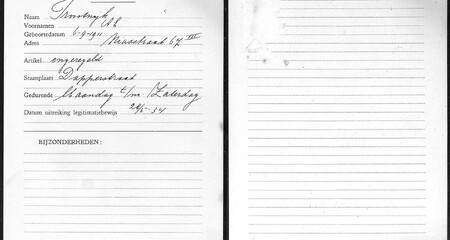 Naam Troostwijk
Voornamen Ab
Geboortedatum 6-9-1911
Adres Maasstraat 67 III
Artikel ongeregeld
Standplaats Dapperstraat
Gedurende Maandag t/m Zaterdag
Datum uitreiking legitimatiebewijs 24/5-34
BIJZONDERHEDEN: